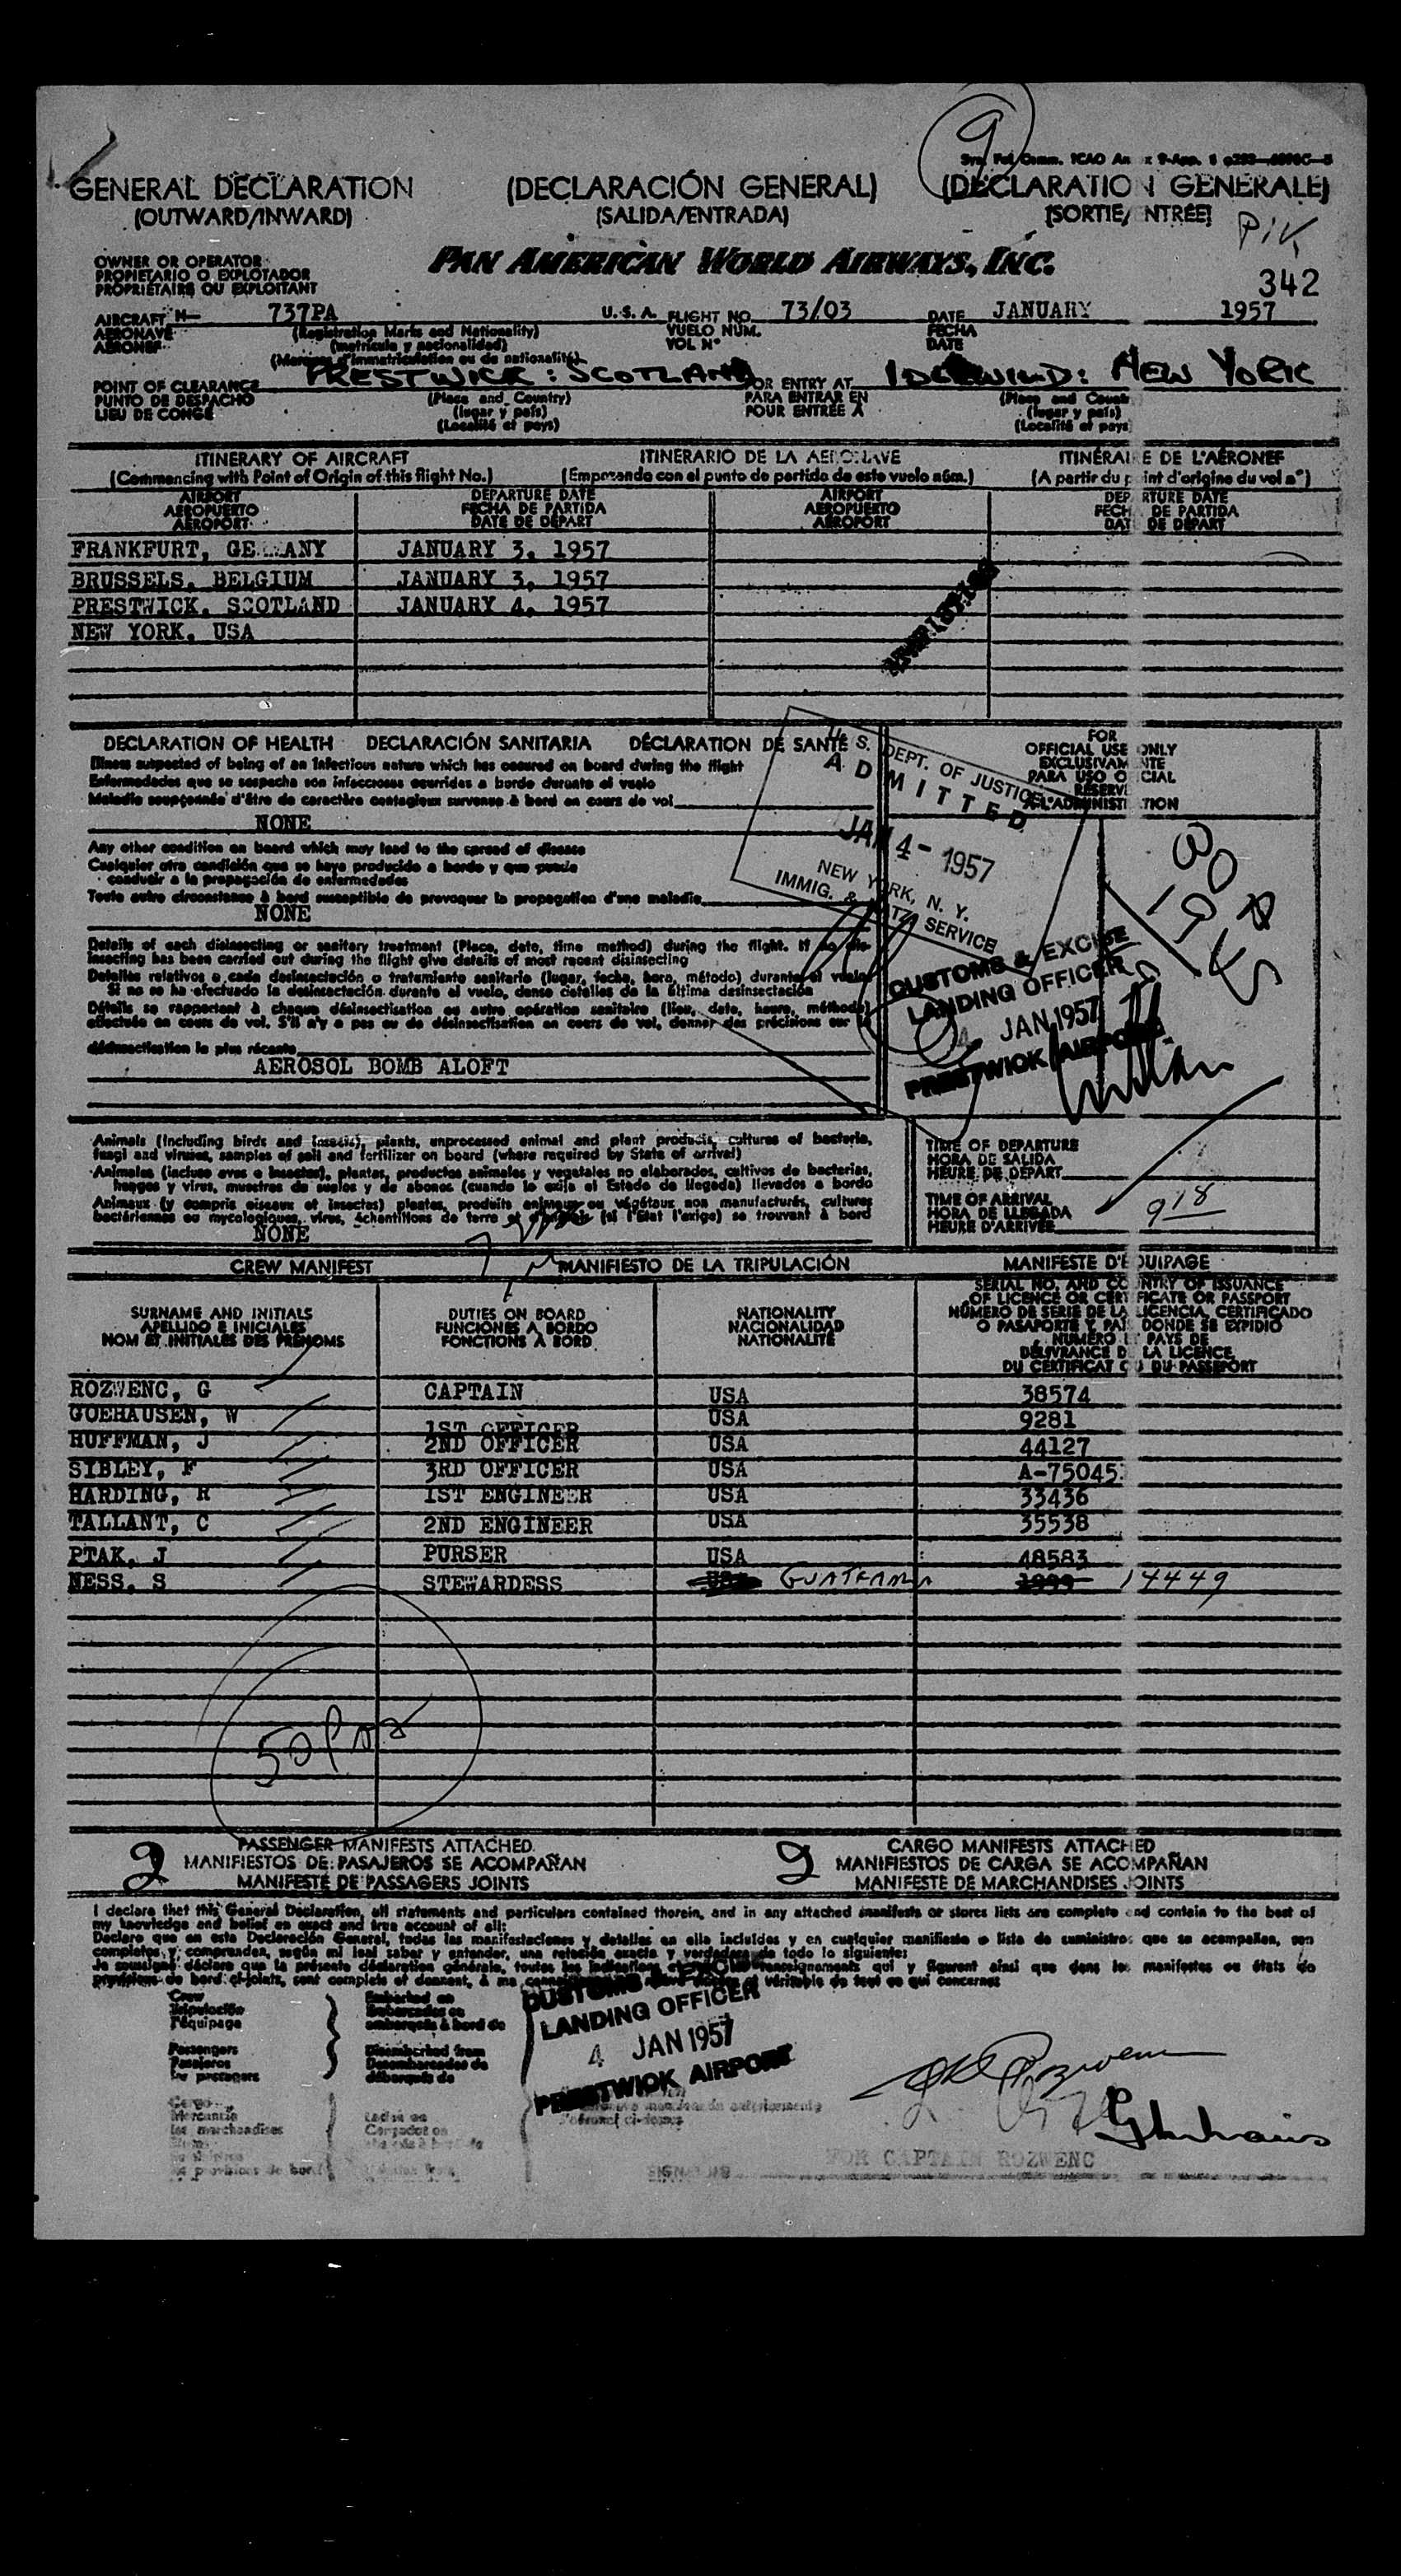 9
GENERAL DECLARATION (DECLARACIÓN GENERAL) (DECLARATION GENERALE)
(OUTWARD/INWARD) (SALIDA/ENTRADA) (SORTIE/ NTRÉE)
PIK
OWNER OR OPERATOR
PROPIETARIO O EXPLOTADOR
PROPRIÉTAIRE OU EXPLOITANT
PAN AMERICAN WORLD AIRWAYS, INC.
342
AIRCRAFT N— 737PA U.S.A. FLIGHT NO. 73/03 DATE JANUARY 1957
AERONAVE (Registration Marks and Nationality) VUELO NÚM. FECHA
AÉRONEF (matrícula y nacionalidad) VOL Nº DATE
(Marques d'immatriculation ou de nationalité)
POINT OF CLEARANCE PRESTWICK: SCOTLAND FOR ENTRY AT IDLEWILD: NEW YORK
PUNTO DE DESPACHO (Place and Country) PARA ENTRAR EN (Place and Countr
LIEU DE CONGÉ (lugar y país) POUR ENTRÉE À (lugar y país)
(Localité et pays) (Localité et pays)
ITINERARY OF AIRCRAFT ITINERARIO DE LA AERONAVE ITINÉRAIRE DE L'AÉRONEF
(Commencing with Point of Origin of this flight No.) (Empezando con el punto de partida de este vuelo núm.) (A partir du point d'origine du vol nº)
AIRPORT DEPARTURE DATE AIRPORT DEPARTURE DATE
AEROPUERTO FECHA DE PARTIDA AEROPUERTO FECHA DE PARTIDA
AÉROPORT DATE DE DÉPART AÉROPORT DATE DE DÉPART
FRANKFURT, GERMANY JANUARY 3, 1957
BRUSSELS, BELGIUM JANUARY 3, 1957
PRESTWICK, SCOTLAND JANUARY 4, 1957
NEW YORK, USA
DECLARATION OF HEALTH DECLARACIÓN SANITARIA DÉCLARATION DE SANTÉ
Illness suspected of being of an infectious nature which has occured on board during the flight
Enfermedades que se sospecha son infecciosas ocurridas a bordo durante el vuelo
Maladie soupçonnée d'être de caractère contagieux survenue à bord en cours de vol
NONE
Any other condition on board which may lead to the spread of disease
Cualquier otra condición que se haya producido a bordo y que pueda
conducir a la propagación de enfermedades
Toute autre circonstance à bord susceptible de provoquer la propagation d'une maladie
NONE
Details of each disinsecting or sanitary treatment (Place, date, time method) during the flight. If no dis-
insecting has been carried out during the flight give details of most recent disinsecting
Detalles relativos a cada desinsectación o tratamiento sanitario (lugar, fecha, hora, método) durante el vuelo
Si no se ha efectuado la desinsectación durante el vuelo, dense detalles de la última desinsectación
Détails se rapportant à chaque désinsectisation ou autre opération sanitaire (lieu, date, heure, méthode)
effectuée en cours de vol. S'il n'y a pas eu de désinsectisation en cours de vol, donner des précisions sur la
désinsectisation la plus récente
AEROSOL BOMB ALOFT
FOR
OFFICIAL USE ONLY
EXCLUSIVAMENTE
PARA USO OFICIAL
RÉSERVÉ
A L'ADMINISTRATION
U. S. DEPT. OF JUSTICE
ADMITTED
JAN 4 - 1957
NEW YORK, N. Y.
IMMIG. & NATZ SERVICE
CUSTOMS & EXCISE
LANDING OFFICER
4 JAN 1957
PRESTWICK AIRPORT
Animals (including birds and insects), plants, unprocessed animal and plant products, cultures of bacteria,
fungi and viruses, samples of soil and fertilizer on board (where required by State of arrival)
Animales (incluso aves e insectos), plantas, productos animales y vegetales no elaborados, cultivos de bacterias,
hongos y virus, muestras de suelos y de abonos (cuando lo exija el Estado de llegada) llevados a bordo
Animaux (y compris oiseaux et insectes) plantes, produits animaux ou végétaux non manufacturés, cultures
bactériennes ou mycologiques, virus, échantillons de terre et d'engrais (si l'Etat l'exige) se trouvant à bord
NONE
TIME OF DEPARTURE
HORA DE SALIDA
HEURE DE DÉPART
TIME OF ARRIVAL
HORA DE LLEGADA 918
HEURE D'ARRIVÉE
CREW MANIFEST MANIFIESTO DE LA TRIPULACIÓN MANIFESTE D'ÉQUIPAGE
SURNAME AND INITIALS DUTIES ON BOARD NATIONALITY SERIAL NO. AND COUNTRY OF ISSUANCE
APELLIDO E INICIALES FUNCIONES A BORDO NACIONALIDAD OF LICENCE OR CERTIFICATE OR PASSPORT
NOM ET INITIALES DES PRÉNOMS FONCTIONS À BORD NATIONALITÉ NÚMERO DE SERIE DE LA LICENCIA, CERTIFICADO
O PASAPORTE Y PAIS DONDE SE EXPIDIÓ
NUMÉRO ET PAYS DE
DÉLIVRANCE DE LA LICENCE,
DU CERTIFICAT OU DU PASSEPORT
ROZWENC, G CAPTAIN USA 38574
GOEHAUSEN, W 1ST OFFICER USA 9281
HUFFMAN, J 2ND OFFICER USA 44127
SIBLEY, F 3RD OFFICER USA A-75045
HARDING, R 1ST ENGINEER USA 33436
TALLANT, C 2ND ENGINEER USA 35538
PTAK, J PURSER USA 48583
NESS, S STEWARDESS GUATEMALA 14449
50 Pax
2 PASSENGER MANIFESTS ATTACHED 2 CARGO MANIFESTS ATTACHED
MANIFIESTOS DE PASAJEROS SE ACOMPAÑAN MANIFIESTOS DE CARGA SE ACOMPAÑAN
MANIFESTE DE PASSAGERS JOINTS MANIFESTE DE MARCHANDISES JOINTS
I declare that this General Declaration, all statements and particulars contained therein, and in any attached manifests or stores lists are complete and contain to the best of
my knowledge and belief an exact and true account of all:
Declaro que en esta Declaración General, todas las manifestaciones y detalles en ella incluídos y en cualquier manifiesto o lista de suministros que se acompañan, son
completos y comprenden, según mi leal saber y entender, una relación exacta y verdadera de todo lo siguiente:
Je soussigné déclare que la présente déclaration générale, toutes les indications et renseignements qui y figurent ainsi que dans les manifestes ou états de
provisions de bord ci-joints, sont complets et donnent, à ma connaissance véritable de tout ce qui concerne:
Crew Embarked on
Tripulación Embarcados en
l'équipage embarqués à bord de
Passengers Disembarked from
Pasajeros Desembarcados de
les passagers débarqués de
Cargo
Mercancía Laded on
les marchandises Cargados en
CUSTOMS & EXCISE
LANDING OFFICER
4 JAN 1957
PRESTWICK AIRPORT
FOR CAPTAIN ROZWENC